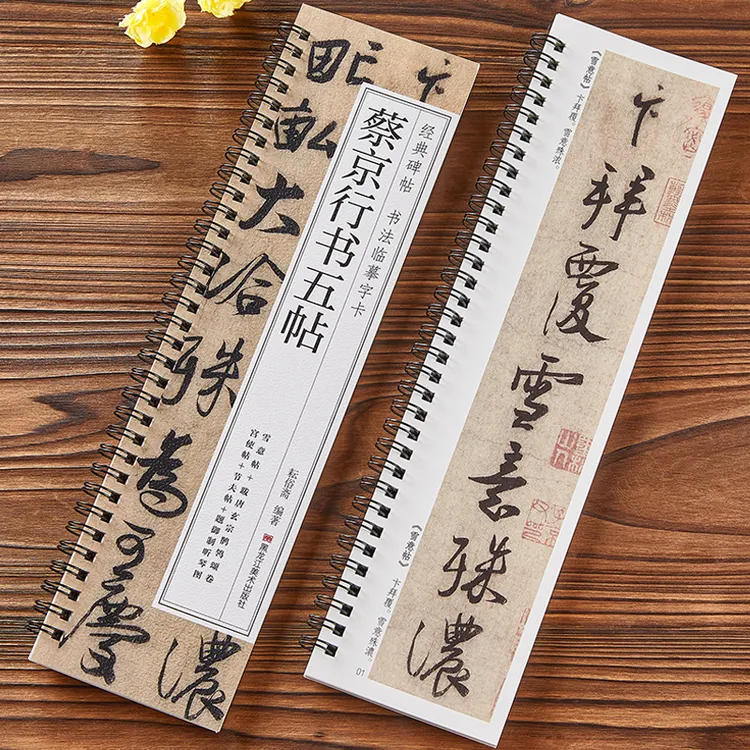 经典碑帖 书法临摹字卡
蔡京行书五帖
雪意帖+跋唐玄宗鹡鸰颂卷
宫使帖+节夫帖+题御制听琴图
耘俗斋 编著
黑龙江美术出版社
卞
濃
畎畝大洽殊為可慶
《雪意帖》 卞拜覆。雪意殊浓。
卞拜覆雪意殊濃
《雪意帖》 卞拜覆。雪意殊濃。
01